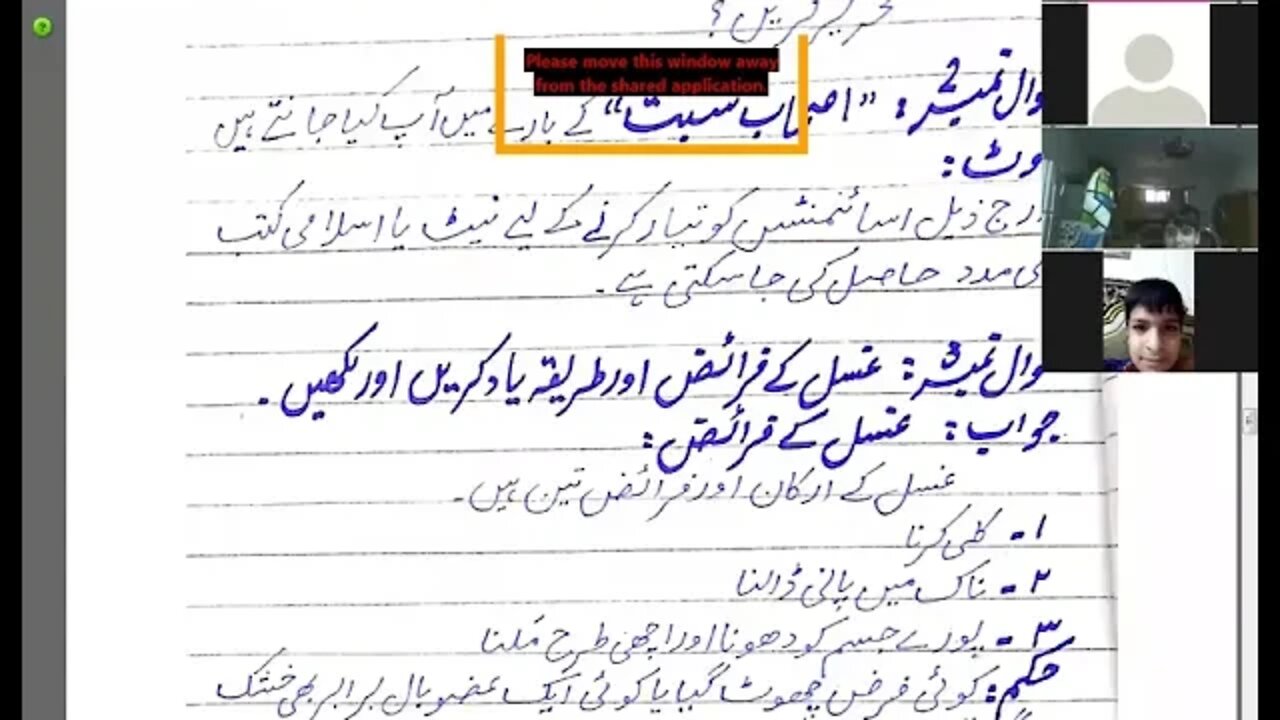 تحریر کریں؟
Please move this window away
from the shared application.
وال نمبر: "اصحاب سبت" کے بارے میں آپ کیا جانتے ہیں
وٹ:
رج ذیل اسائنمنٹس کو تیار کرنے کے لیے نیٹ یا اسلامی کتب
ی مدد حاصل کی جا سکتی ہے۔
وال نمبر: غسل کے فرائض اور طریقہ یاد کریں اور لکھیں۔
جواب: غسل کے فرائض:
غسل کے ارکان اور فرائض تین ہیں۔
۱- کلی کرنا
۲- ناک میں پانی ڈالنا
۳- پورے جسم کو دھونا اور اچھی طرح مَلنا
حکم: کوئی فرض چھوٹ گیا یا کوئی ایک عضو بال برابر بھی خشک